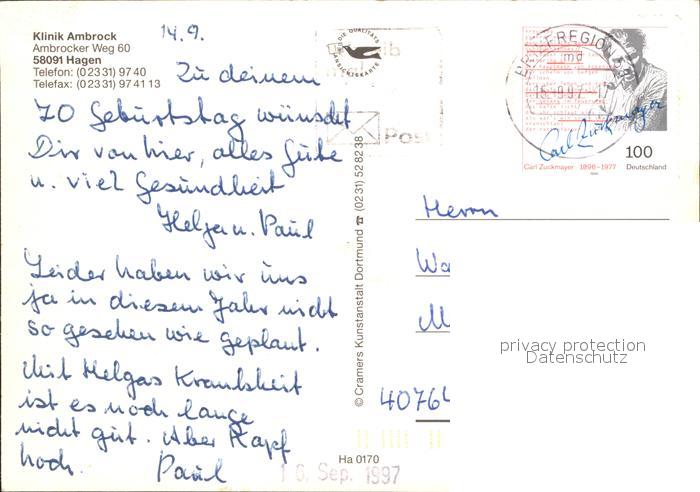 Klinik Ambrock
Ambrocker Weg 60
58091 Hagen
Telefon: (0 23 31) 97 40
Telefax: (0 23 31) 97 41 13
14.9.
Zu deinem
70 Geburtstag wünscht
Dir von hier, alles Gute
u. viel Gesundheit
Helga u. Paul
Leider haben wir uns
ja in diesem Jahr nicht
so gesehen wie geplant.
Mit Helgas Krankheit
ist es noch lange
nicht gut. Aber Kopf
hoch. Paul
DIE QUALITÄTS
ANSICHTSKARTE
Post
© Cramers Kunstanstalt Dortmund ☎ (0231) 528238
Ha 0170
16. Sep. 1997
BRIEFREGION 58
md
Carl Zuckmayer
100
Carl Zuckmayer 1896–1977 Deutschland
Herrn
Wa
M
40764
privacy protection
Datenschutz